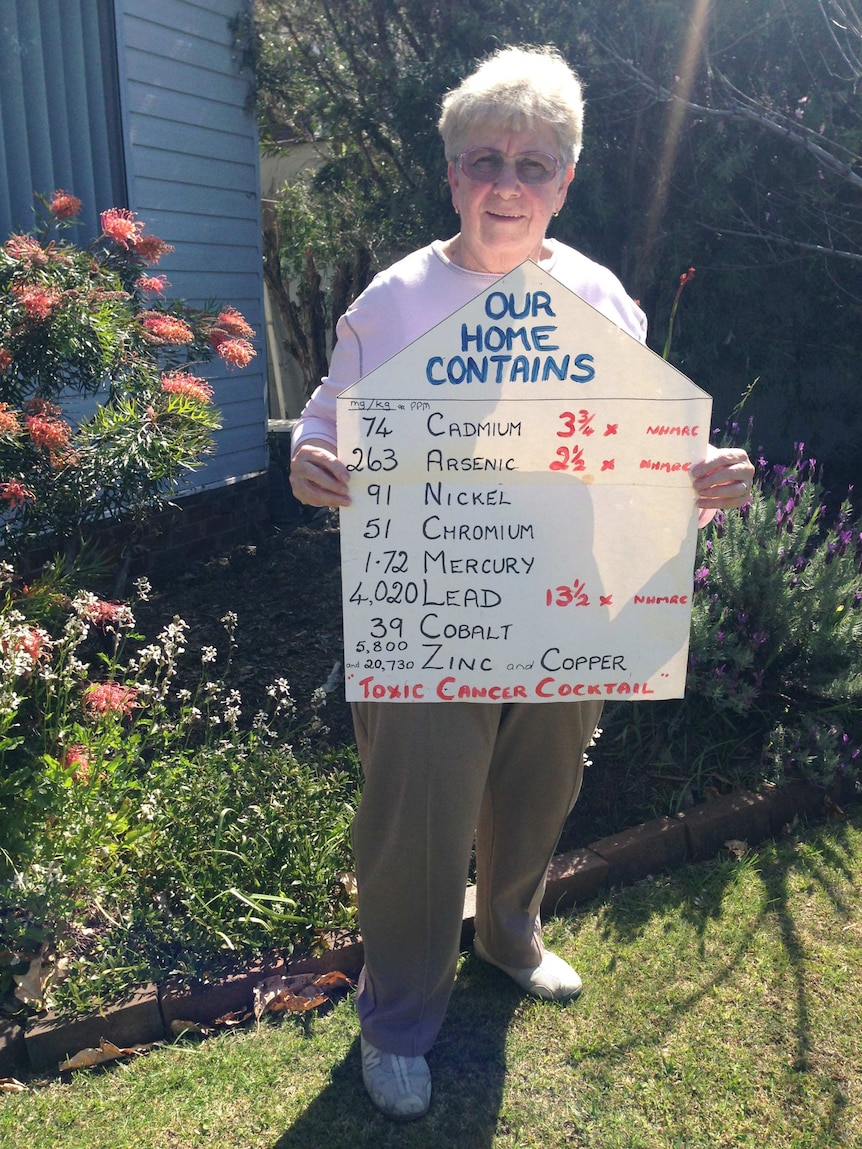 OUR
HOME
CONTAINS
mg/kg or PPM
74 CADMIUM 3¾ x NHMRC
263 ARSENIC 2½ x NHMRC
91 NICKEL
51 CHROMIUM
1.72 MERCURY
4,020 LEAD 13½ x NHMRC
39 COBALT
5,800
and 20,730 ZINC and COPPER
"TOXIC CANCER COCKTAIL"